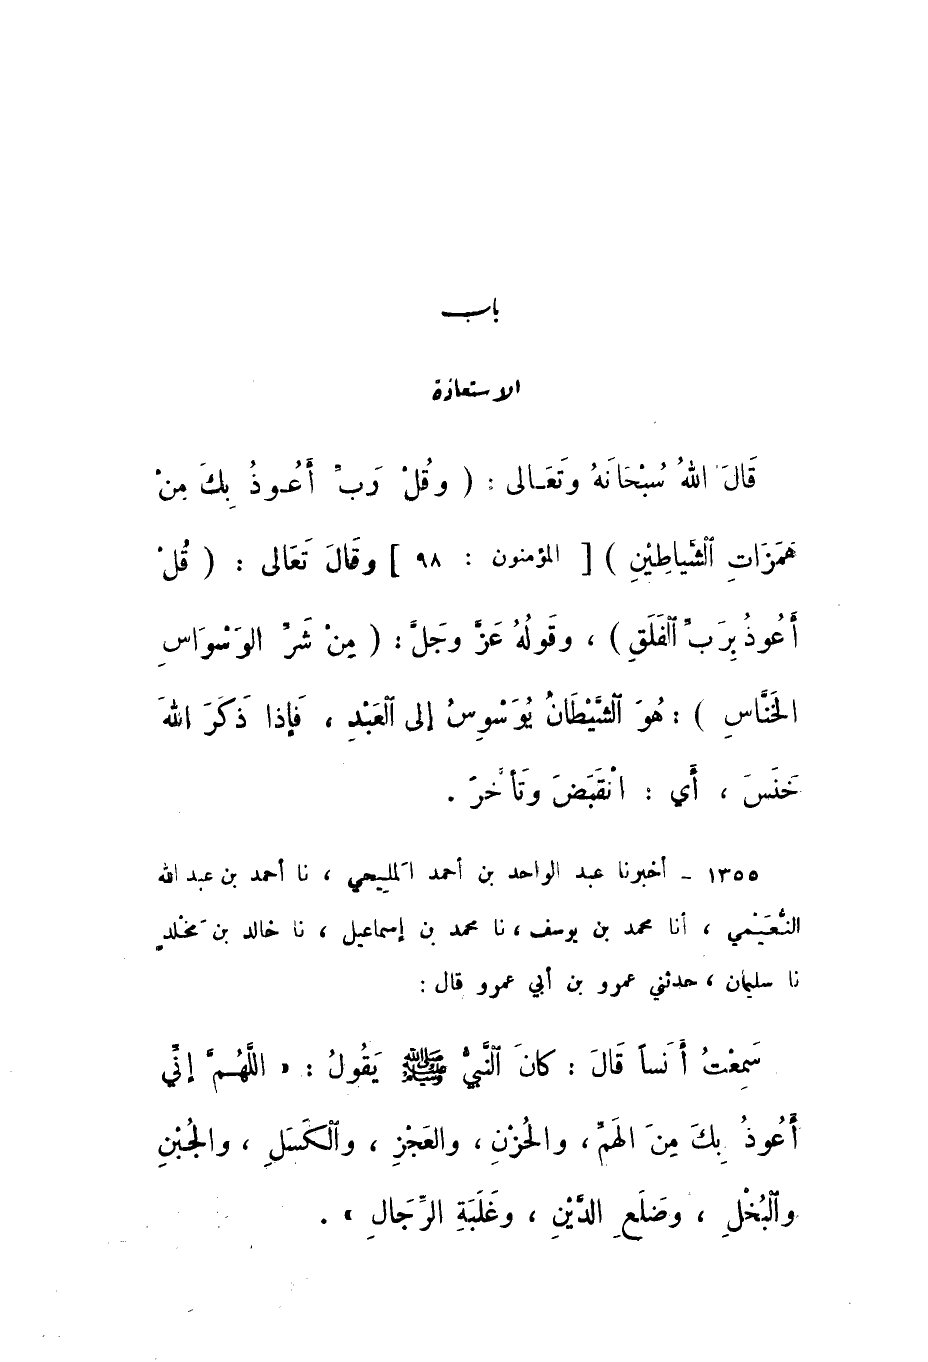 باب
الاستعاذة
قَالَ اللهُ سُبْحَانَهُ وتَعَالى : ( وقُلْ رَبِّ أَعُوذُ بِكَ مِنْ
هَمَزَاتِ الشَّياطِيْنِ ) [ المؤمنون : ٩٨ ] وقَالَ تَعَالى : ( قُلْ
أَعُوذُ بِرَبِّ الفَلَقِ ) ، وقَولُهُ عَزَّ وجَلَّ : ( مِنْ شَرِّ الوَسْوَاسِ
الخَنَّاسِ ) : هُوَ الشَّيْطَانُ يُوَسْوِسُ إلى العَبْدِ ، فَإذا ذَكَرَ اللهَ
خَنَسَ ، أَي : انْقَبَضَ وتَأَخَّرَ .
١٣٥٥ ـ أخبرنا عبد الواحد بن أحمد المَليحي ، نا أحمد بن عبد الله
النُّعَيْمي ، أنا محمد بن يوسف ، نا محمد بن إسماعيل ، نا خالد بن مَخْلدٍ
نا سليمان ، حدثني عمرو بن أبي عمرو قال :
سَمِعْتُ أَنَساً قَالَ : كانَ النَّبيُّ ﷺ يَقُولُ : « اللَّهُمَّ إنِّي
أَعُوذُ بِكَ مِنَ الهَمِّ ، والحُزْنِ ، والعَجْزِ ، والكَسَلِ ، والجُبْنِ
والبُخْلِ ، وضَلَعِ الدَّيْنِ ، وغَلَبَةِ الرِّجَالِ » .